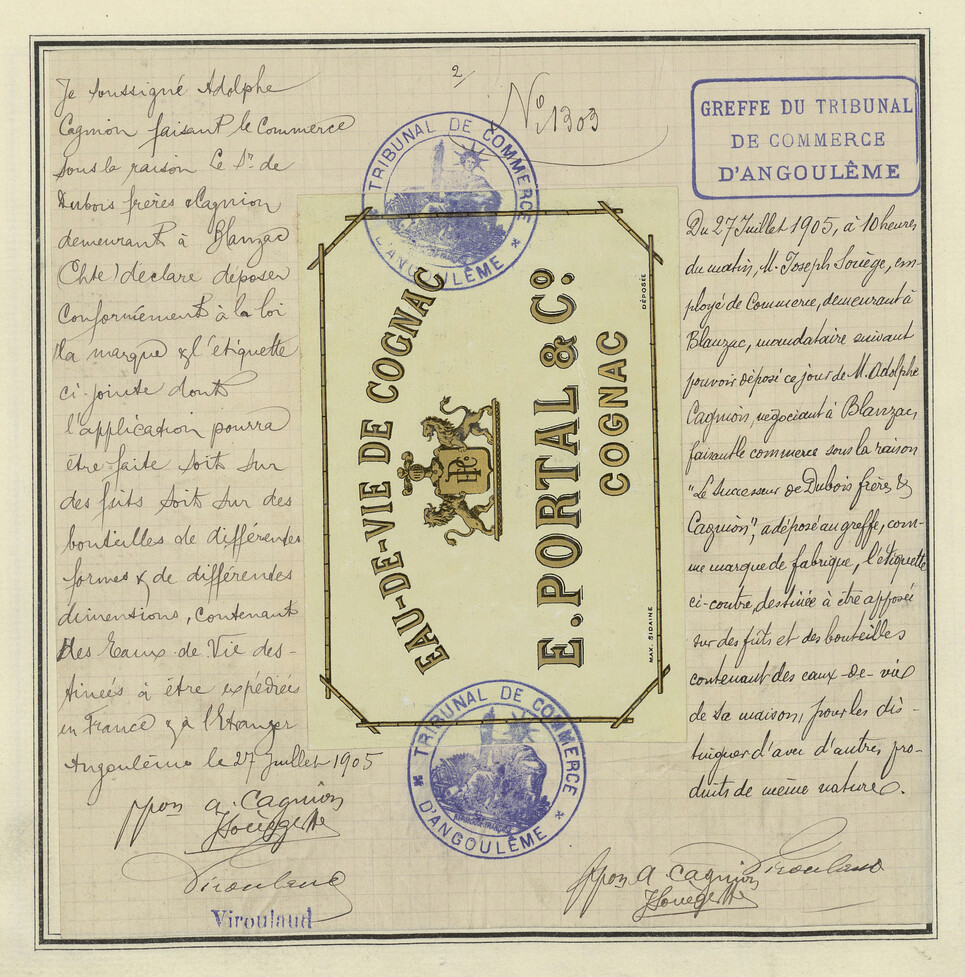 2/
N° 1303
Je soussigné Adolphe
Cagnion faisant le Commerce
sous la raison Le Sr de
Dubois frères & Cagnion
demeurant à Blanzac
(Chte) déclare déposer
Conformément à la loi
la marque & l'étiquette
ci-jointe dont
l'application pourra
être faite soit sur
des futs soit sur des
bouteilles de différentes
formes & de différentes
dimentions, contenant
des Eaux de Vie des-
tinées à être expédiées
en France & à l'Etranger
Angoulême le 27 Juillet 1905
ppon A. Cagnion
Virouland
Virouland
TRIBUNAL DE COMMERCE
D'ANGOULÊME
EAU-DE-VIE DE COGNAC
E. PORTAL & Co.
COGNAC
DÉPOSÉE
MAX. SIDAINE
TRIBUNAL DE COMMERCE
D'ANGOULÊME
GREFFE DU TRIBUNAL
DE COMMERCE
D'ANGOULÊME
Du 27 Juillet 1905, à 10 heures
du matin, M. Joseph Souège, em-
ployé de Commerce, demeurant à
Blanzac, mandataire suivant
pouvoir déposé ce jour de M. Adolphe
Cagnion, négociant à Blanzac,
faisant le commerce sous la raison
"Le Successeur de Dubois frères &
Cagnion", a déposé au greffe, com-
me marque de fabrique, l'étiquette
ci-contre, destinée à être apposée
sur des fûts et des bouteilles
contenant des eaux-de-vie
de sa maison, pour les dis-
tinguer d'avec d'autres pro-
duits de même nature.
ppon A. Cagnion
Virouland